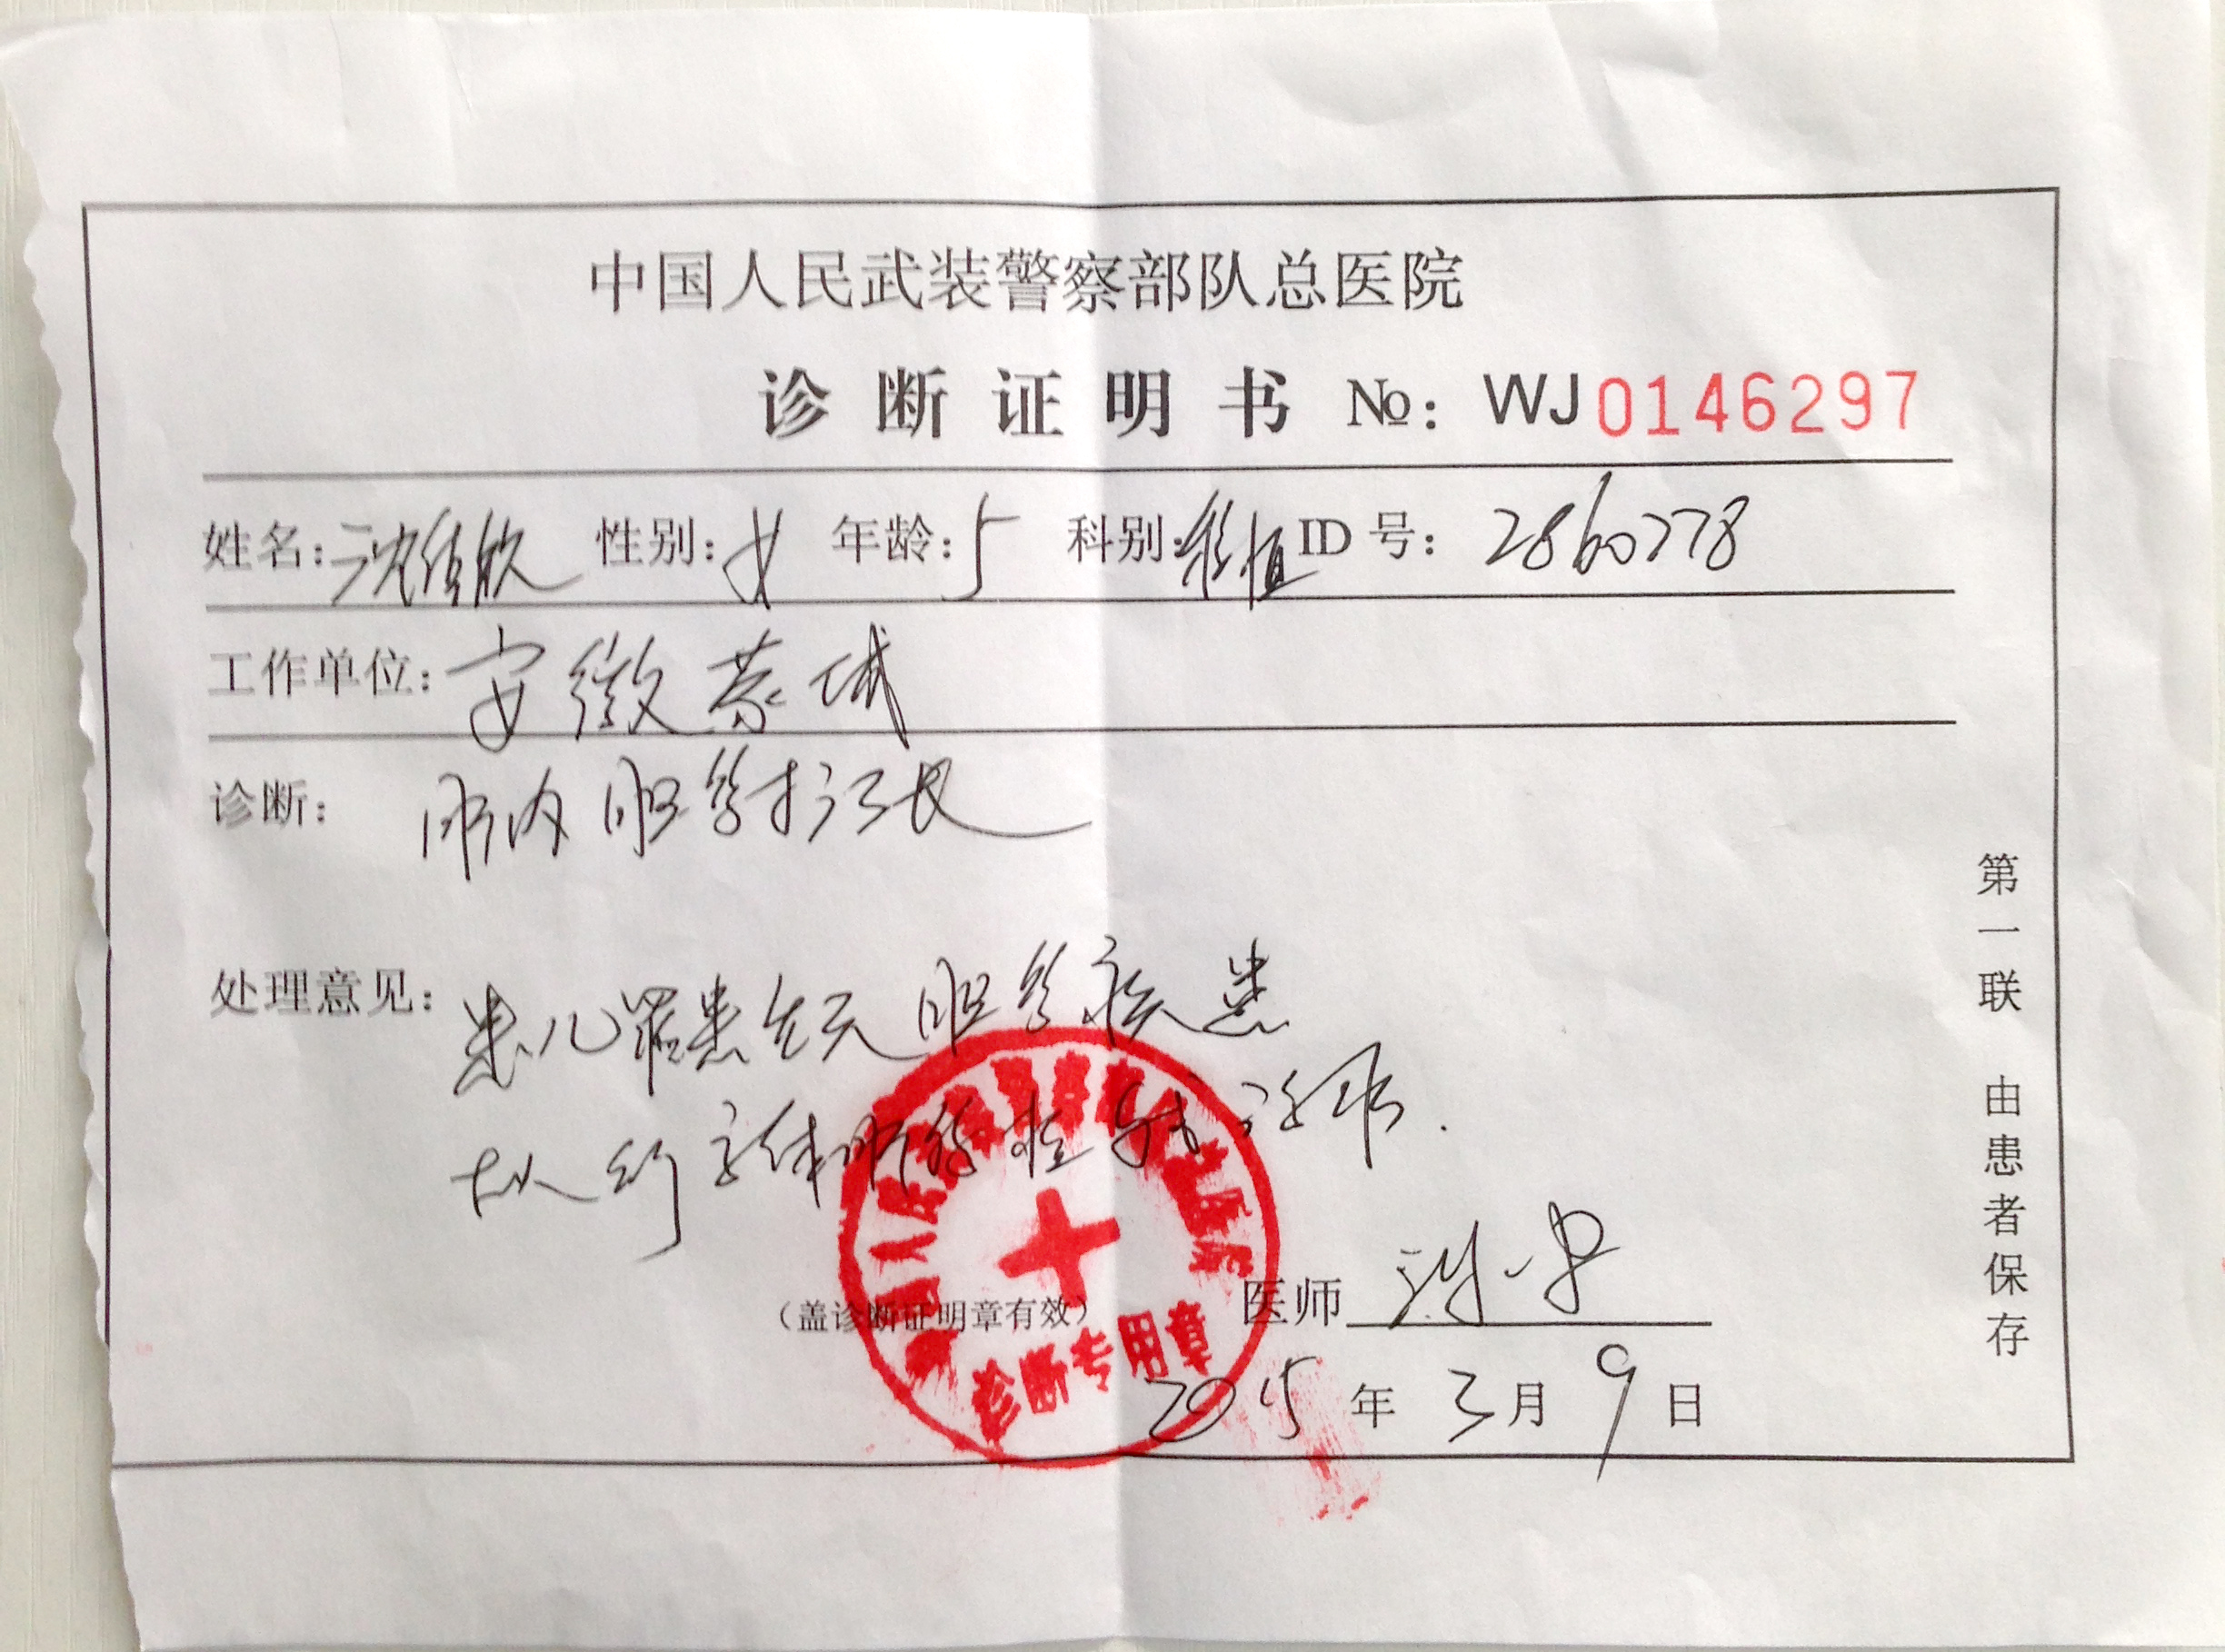 中国人民武装警察部队总医院
诊断证明书 №: WJ0146297
姓名: 沈佳欣 性别: 女 年龄: 5 科别: 移植 ID号: 2860278
工作单位: 安徽蒙城
诊断: 肝内胆管扩张
处理意见: 患儿罹患先天胆管疾患
拟行 肝移植 治疗.
(盖诊断证明章有效) 医师
诊断专用章
2015年3月9日
第一联 由患者保存